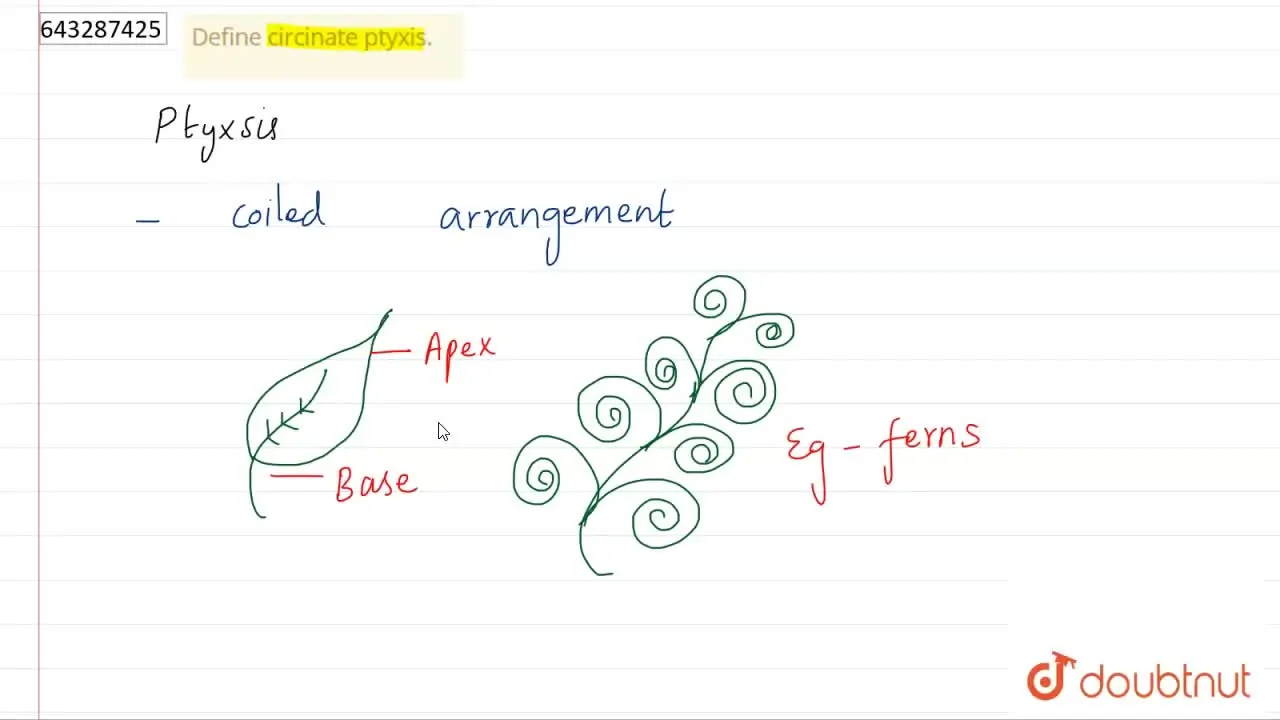 643287425
Define circinate ptyxis.
Ptyxsis
– coiled arrangement
Apex
Base
Eg – ferns
doubtnut